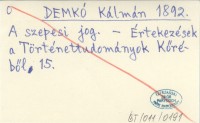 DEMKÓ Kálmán 1892.
A szepesi jog. - Értekezések
a Történettudományok Köré-
ből, 15.
BT/011/0191